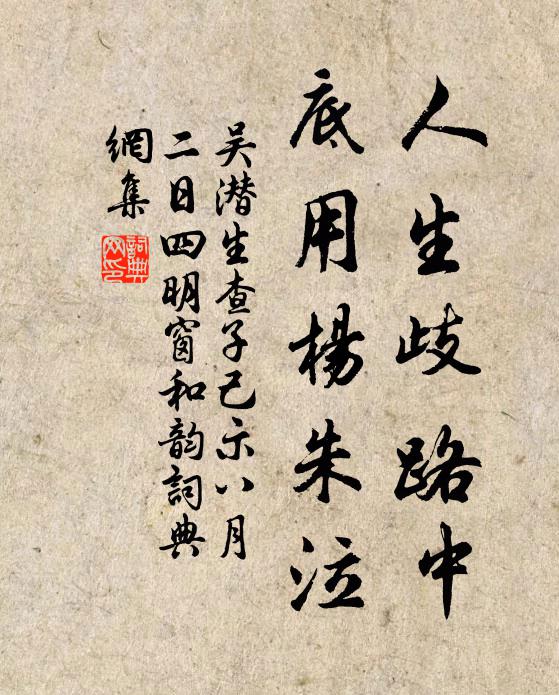 人生歧路中
底用楊朱泣
吴潜生查子己示八月
二日四明窗和韵詞典
網集
詞典网印